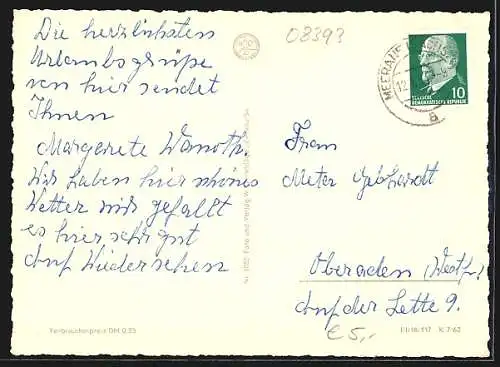 Die herzlichsten
Urlaubsgrüße
von hier sendet
Ihnen
Margarete
Wir haben hier schönes
Wetter mir gefällt
es hier sehr gut
Auf Wiedersehen
08393
MEERANE
12
a
10
DEUTSCHE
DEMOKRATISCHE REPUBLIK
Frau
Meta Gebhardt
Oberaden (Westf.)
Auf der Lette 9.
€ 5,-
Verbraucherpreis DM 0,25
III/18/117 K 7/62